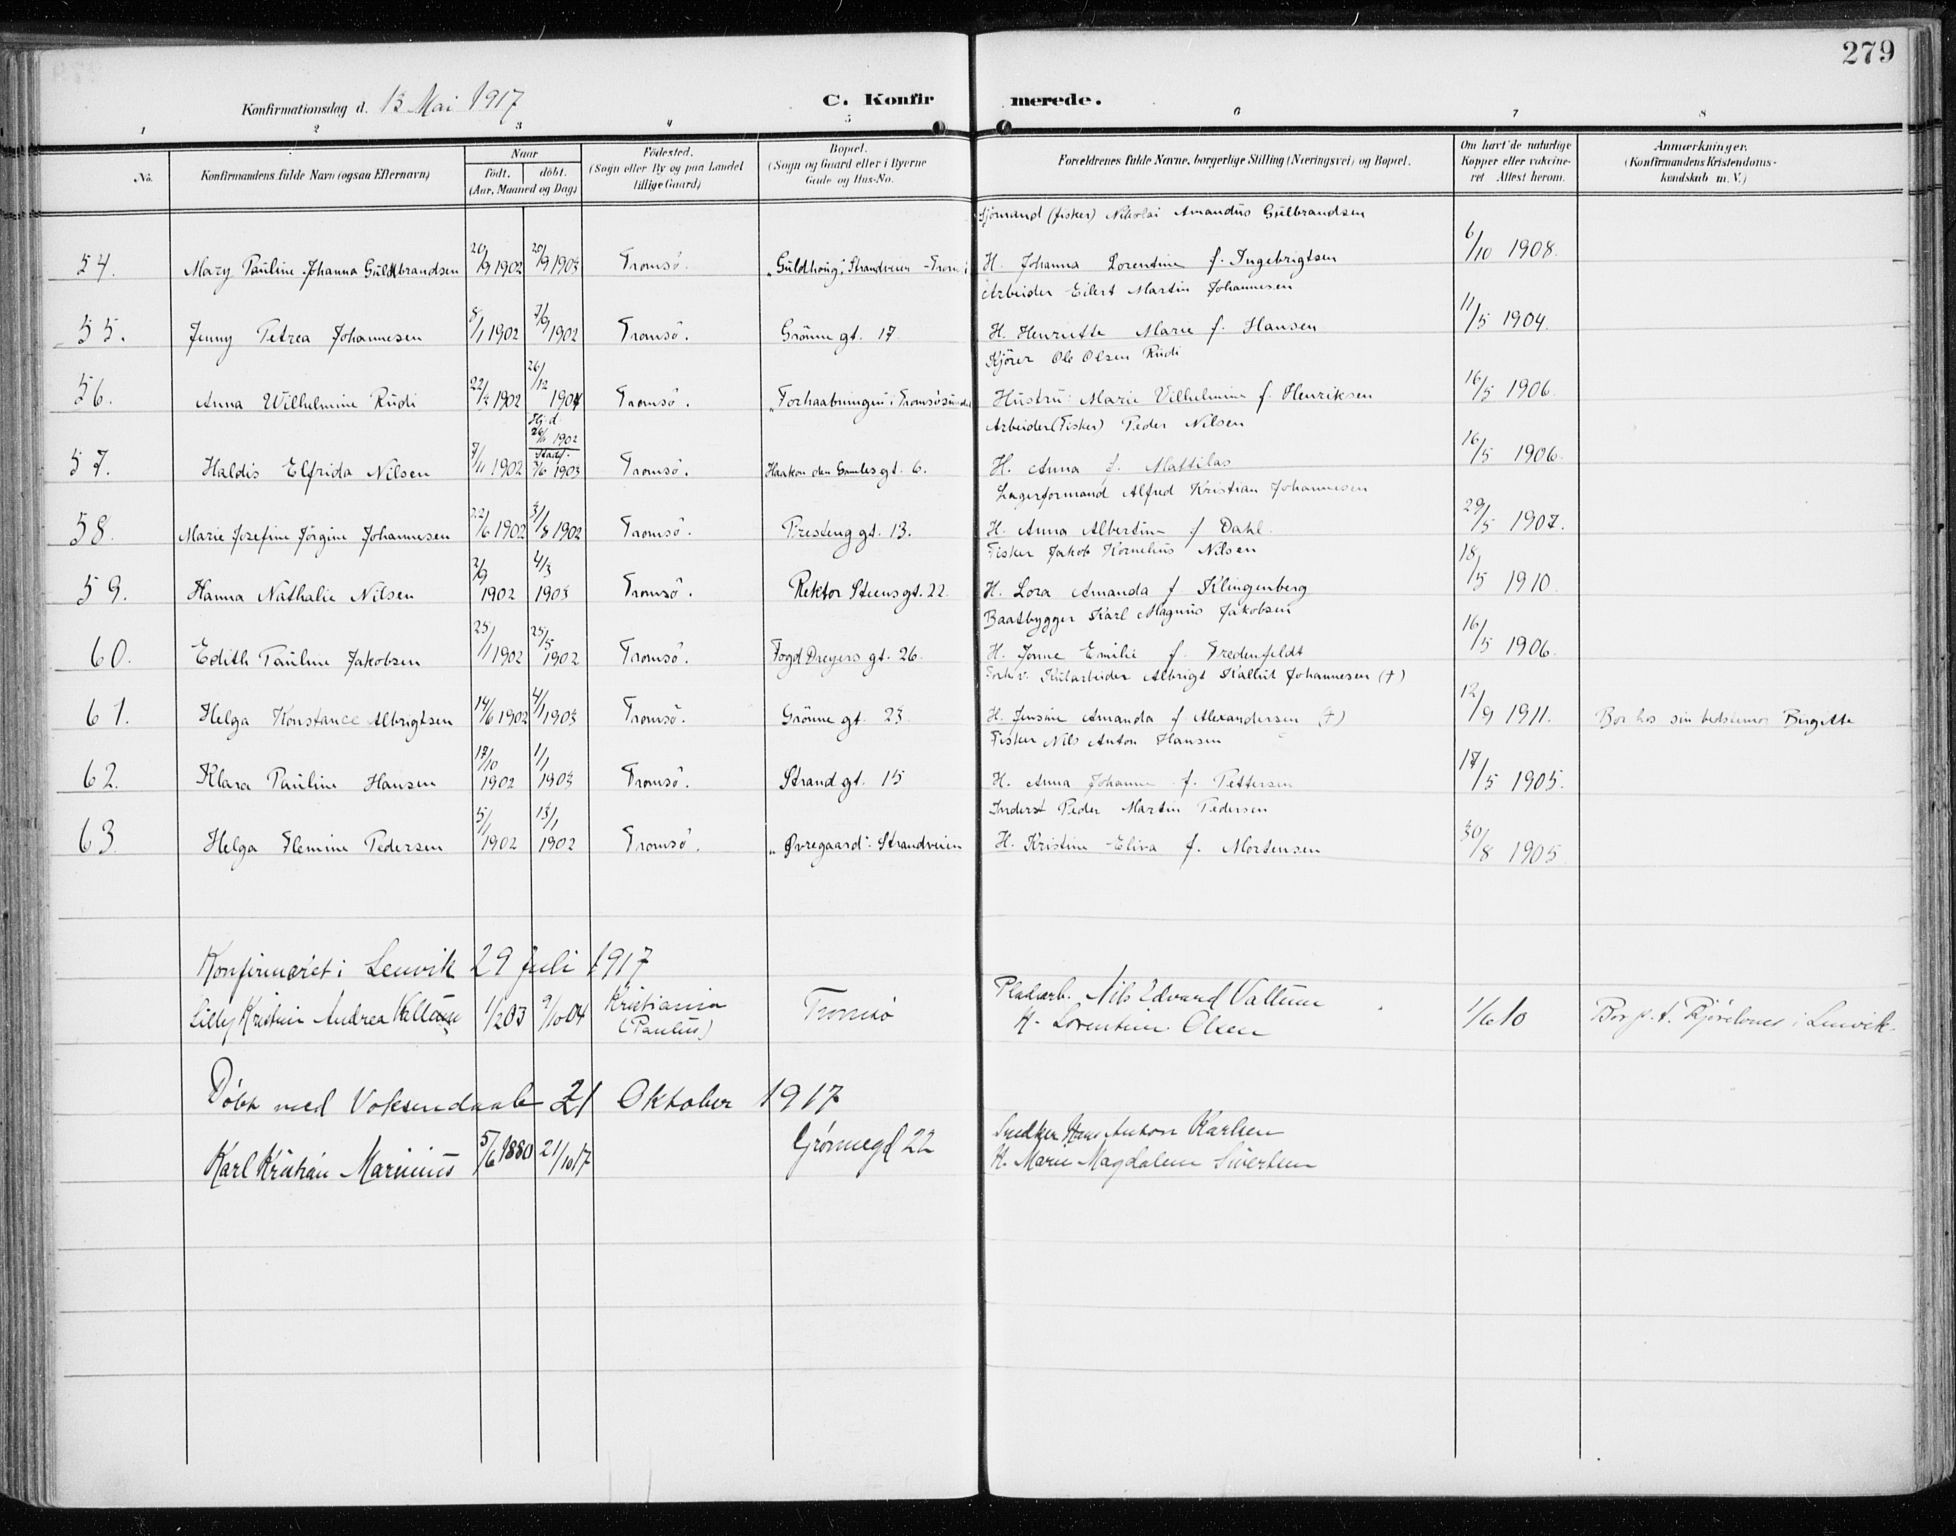 279
Konfirmationsdag d. 13 Mai 1917
C. Konfirmerede.
1 2 3 4 5 6 7 8
No.
Konfirmandens fulde Navn (ogsaa Efternavn)
Naar
födt. döbt.
(Aar, Maaned og Dag)
Födested.
(Sogn eller By og paa Landet
tillige Gaard)
Bopæl.
(Sogn og Gaard eller i Byerne
Gade og Hus-No.
Forældrenes fulde Navne, borgerlige Stilling (Næringsvei) og Bopæl.
Om havt de naturlige
Kopper eller vakcine-
ret Attest herom.
Anmærkninger.
(Konfirmandens Kristendoms-
kundskab m. V.)
Sjømand (fisker) Nikolai Amandus Gulbrandsen
54. Mary Pauline Johanna Guldbrandsen 20/9 1902 20/9 1903 Tromsö. „Guldhaug", Strandveien H. Johanna Lorentine f. Ingebrigtsen 6/10 1908.
Arbeider Eilert Martin Johannesen
55. Jenny Petrea Johannesen 8/1 1902 7/9 1902 Tromsö. Grönne gt. 17 H. Henriette Marie f. Hansen 11/5 1904.
Kjörer Ole Olsen Rudi
56. Anna Wilhelmine Rudi 22/2 1902 26/12 1904 Tromsö. „Forhaabningen" i Tromsösundet Hustru: Marie Vilhelmine f. Henriksen 16/5 1906.
Hj. d.
26/11 1902
Stadf.
Arbeider (Fisker) Peder Nilsen
57. Haldis Elfrida Nilsen 7/11 1902 7/6 1903 Tromsö. Haakon den Gamles gt. 6. H. Anna f. Mattilas 16/5 1906.
Lagerformand Alfred Kristian Johannesen
58. Marie Josefine Jörgine Johannesen 22/6 1902 31/8 1902 Tromsö. Presteng gt. 13. H. Anna Albertine f Dahl. 29/5 1907.
Fisker Jakob Kornelius Nilsen
59. Hanna Nathalie Nilsen 2/9 1902 4/3 1903 Tromsö. Rektor Steens gt. 22. H. Lora Amanda f Klingenberg 18/5 1910.
Baatbygger Karl Magnus Jakobsen
60. Edith Pauline Jakobsen 25/1 1902 25/5 1902 Tromsö. Fogd Dreyers gt. 26. H. Jonne Emilie f. Fredenfeldt 16/5 1906.
Forhv. Kularbeider Albrigt Johannesen (†)
61. Helga Konstance Albrigtsen 14/6 1902 4/1 1903 Tromsö. Grönne gt. 23 H. Jensine Amanda f Alexandersen (†) 12/9 1911. Bor hos sin bedstemor Birgitte
Fisker Nils Anton Hansen
62. Klara Pauline Hansen 17/10 1902 1/1 1903 Tromsö. Strand gt. 15 H. Anna Johanne f. Pettersen 17/5 1905.
Inderst Peder Martin Pedersen
63. Helga Flemine Pedersen 5/1 1902 13/1 1902 Tromsö. „Øvregaard". Strandveien H. Kristine Eliva f. Mortensen 30/8 1905.
Konfirmeret i Lenvik 29 juli 1917
Lilly Kristine Andrea Valtum 1/2 03 9/10 04 Kristiania (Paulus) Tromsö Pladearb. Nils Edvard Valtum 1/6 10 Bor p.t. i Lenvik.
H. Lorentine Olsen
Döbt med Voksendaab 21 Oktober 1917
Karl Kristian Marinius 5/6 1880 21/10 17 Grönnegd 22 Snedker Hans Anton Karlsen
H. Marie Magdalene Sivertsen